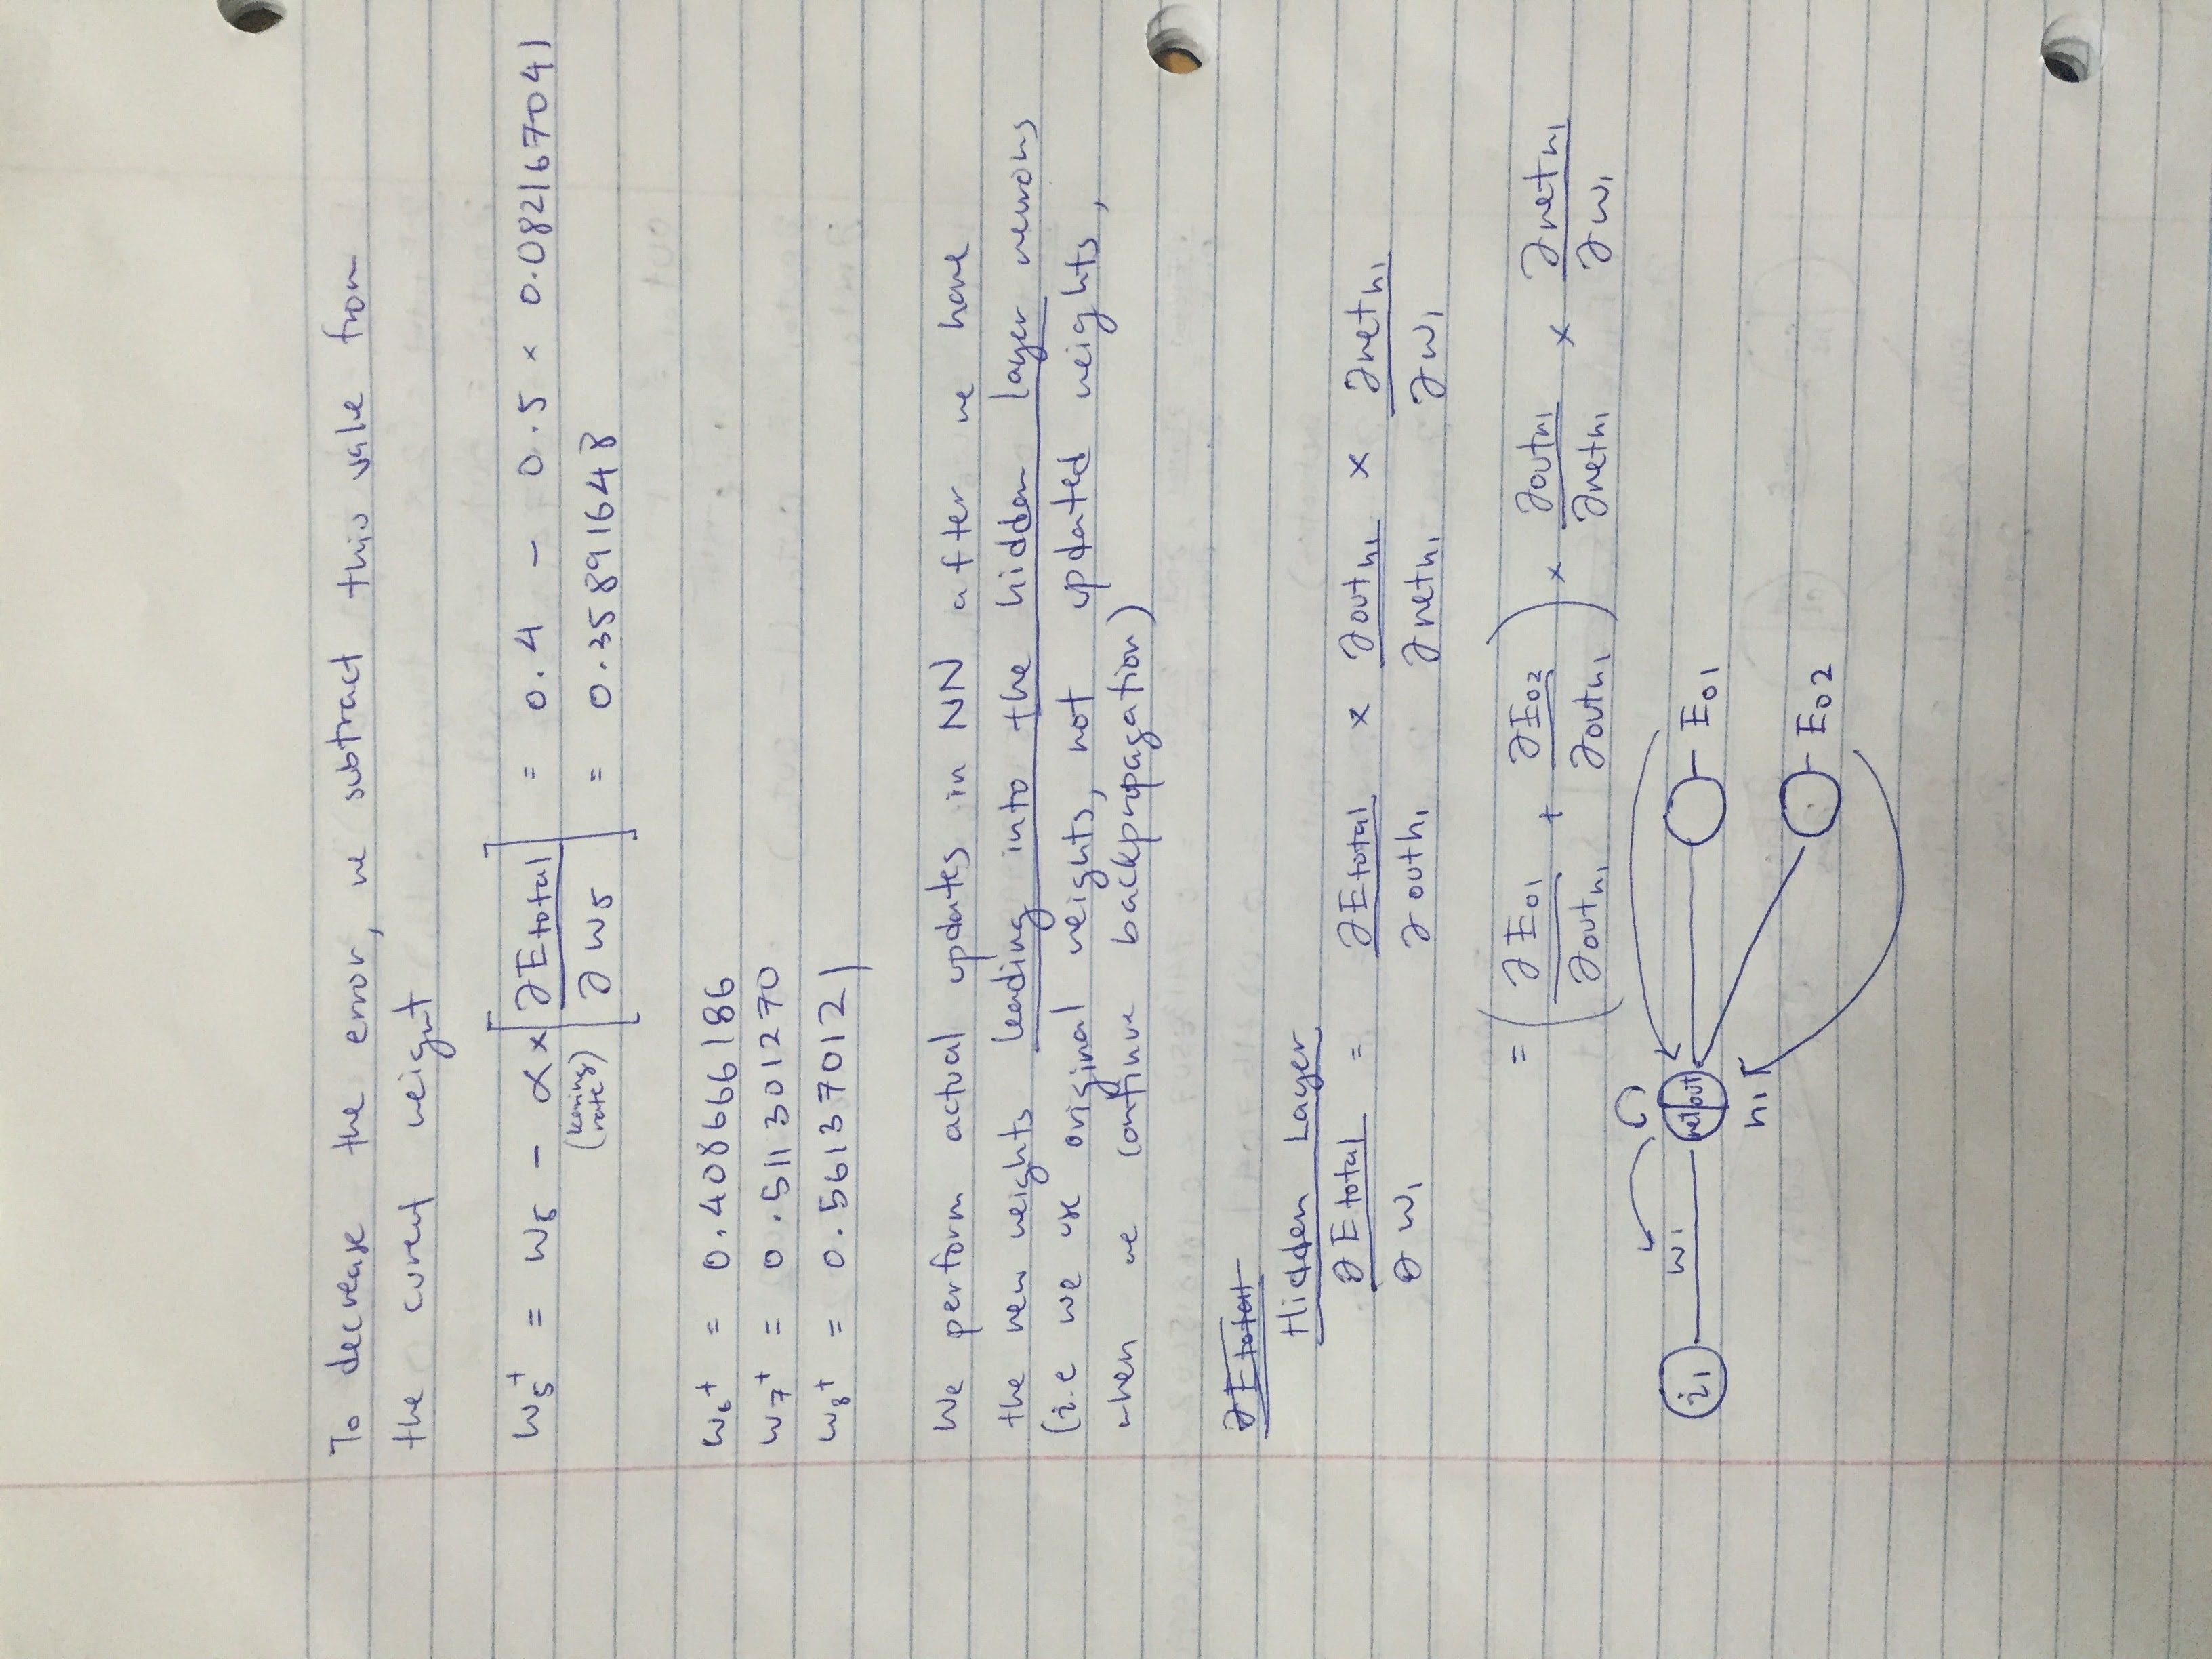 To decrease the error, we subtract this value from
the curent weight
w₅⁺ = w₅ - α × [∂Etotal / ∂w₅] = 0.4 - 0.5 × 0.082167041
(learning rate) = 0.35891648
w₆⁺ = 0.408666186
w₇⁺ = 0.511301270
w₈⁺ = 0.561370121
We perform actual updates in NN after we have
the new weights leading into the hidden layer neurons
(i.e we use original weights, not updated weights,
when we continue backpropagation)
∂Etotal
Hidden Layer
∂Etotal / ∂w₁ = ∂Etotal / ∂outh₁ × ∂outh₁ / ∂neth₁ × ∂neth₁ / ∂w₁
= (∂Eo1 / ∂outh₁ + ∂Eo2 / ∂outh₁) × ∂outh1 / ∂neth₁ × ∂neth₁ / ∂w₁
i₁ w₁ net out Eo1
h₁
Eo2